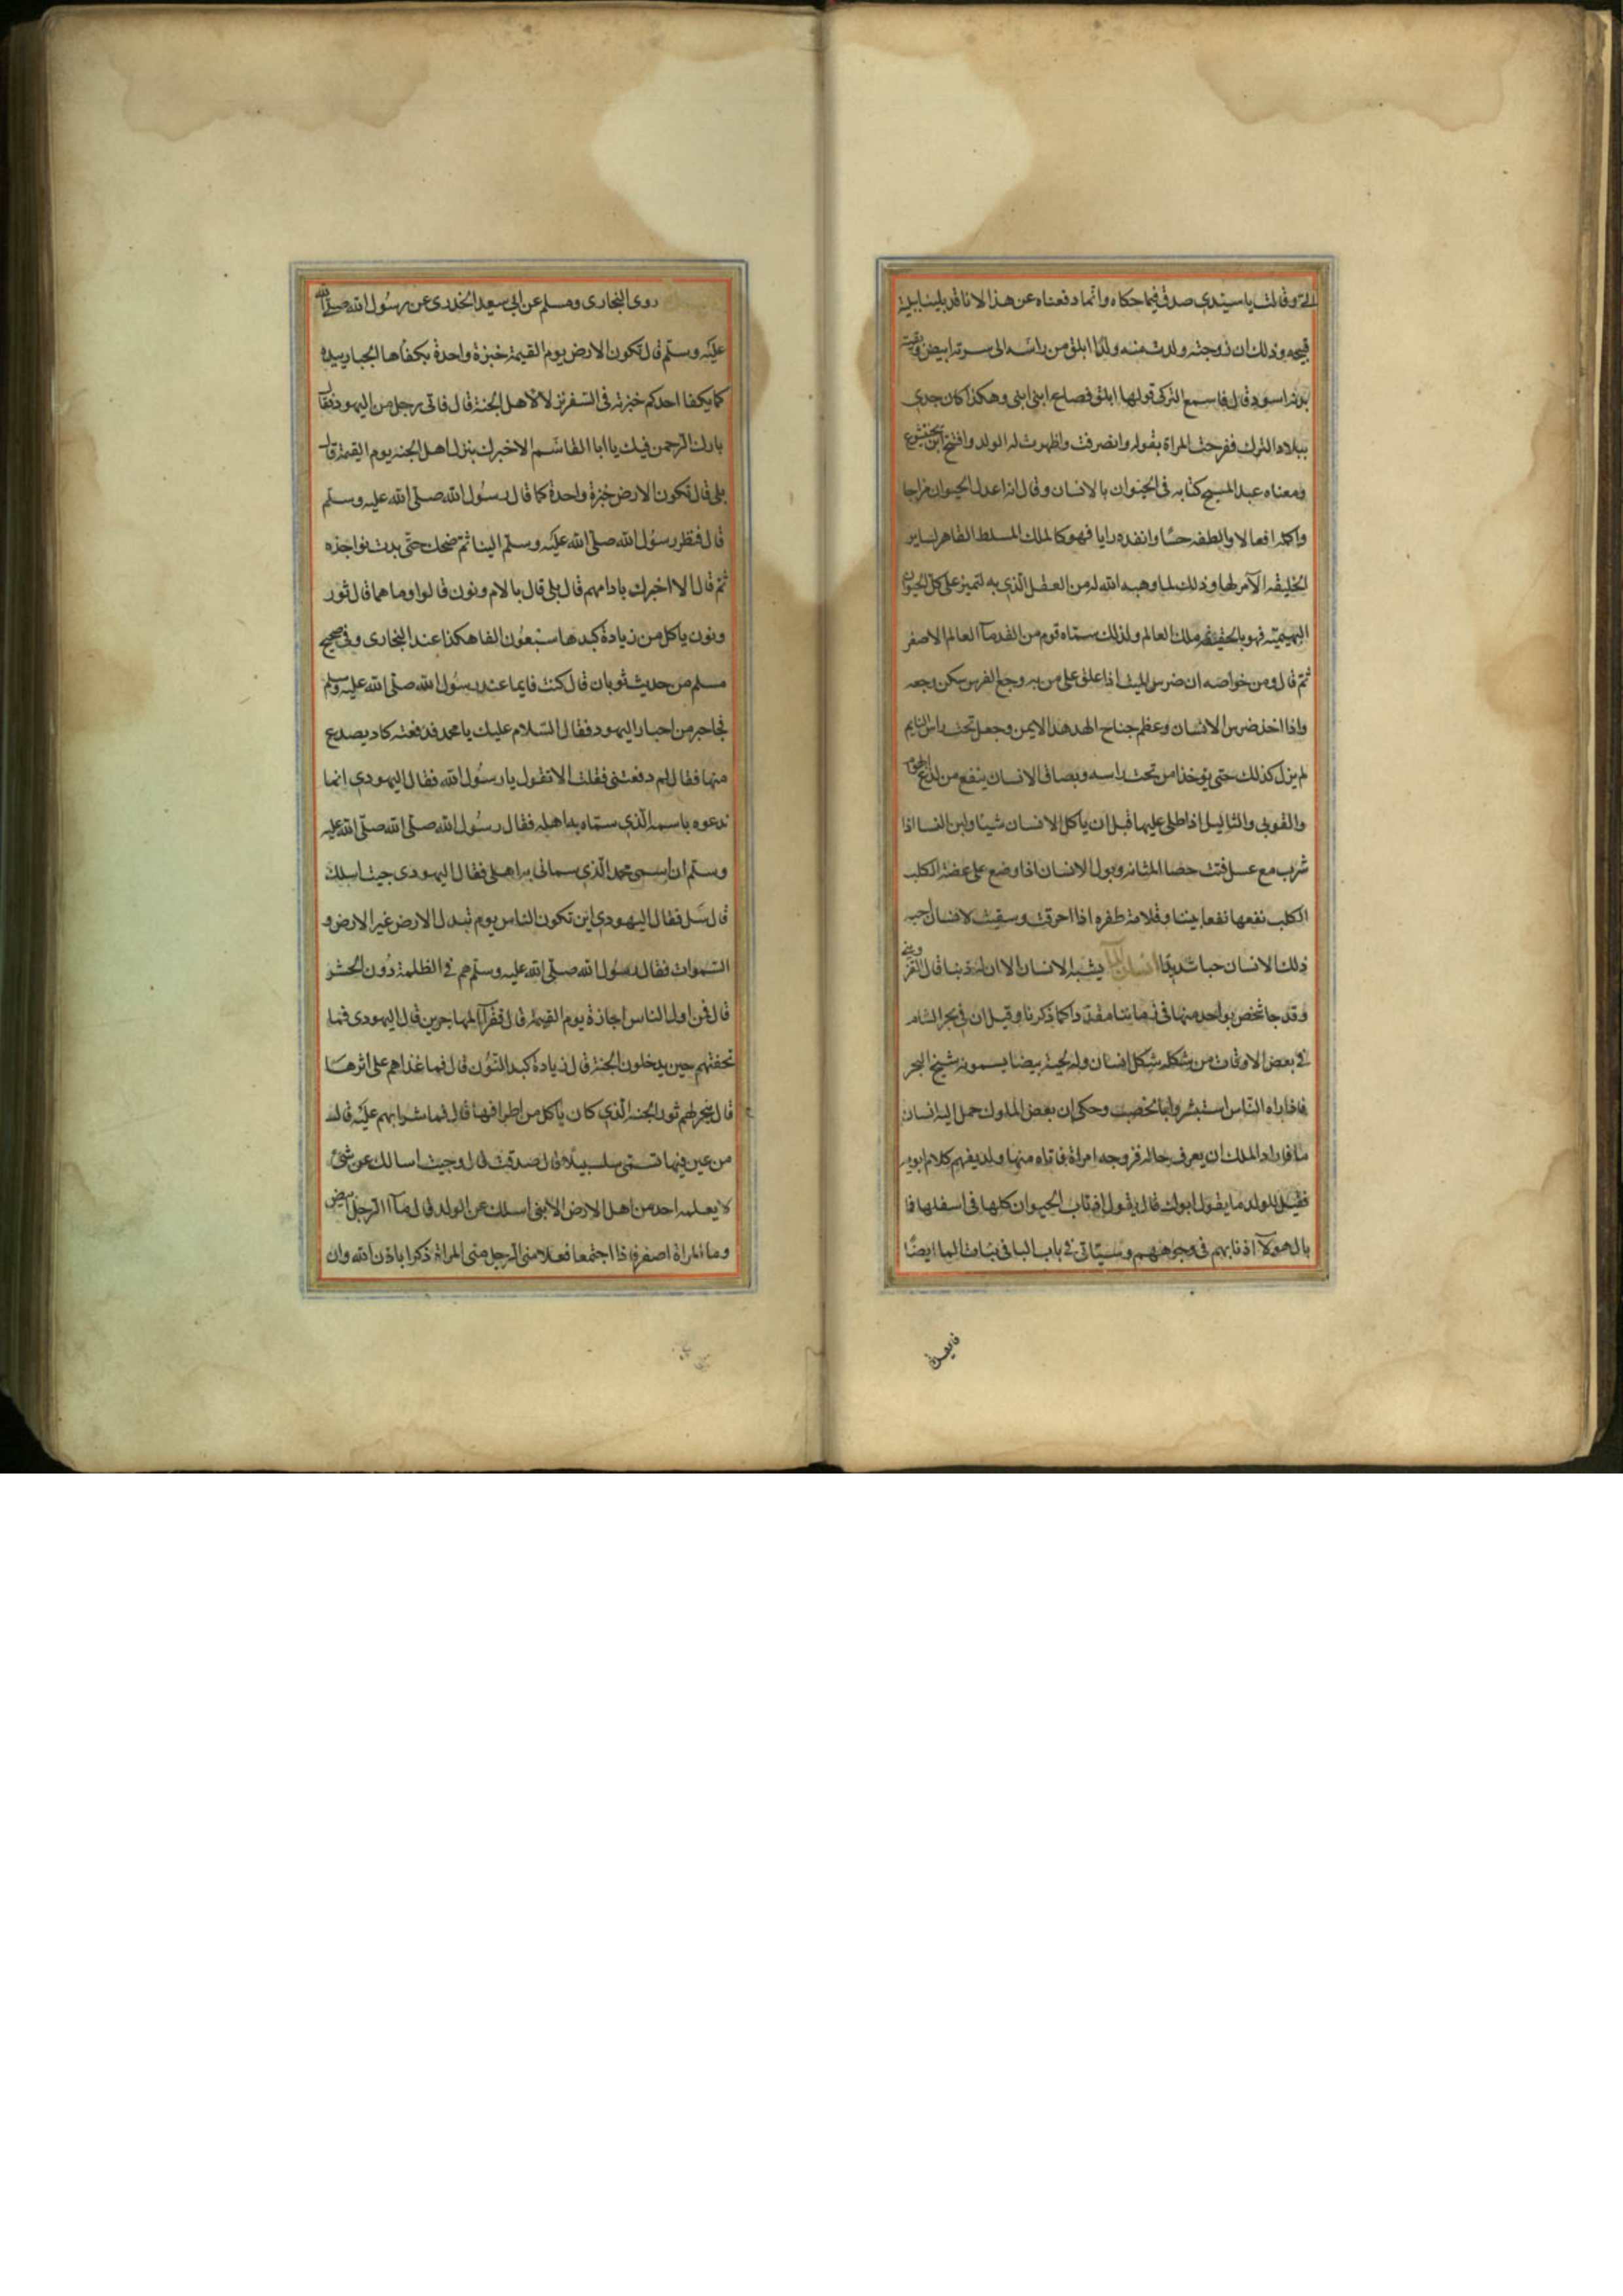 الي وقالت يا سيدي صدق فيما حكاه وانما دفعناه عن هذا لانا قد بلينا ببلية
قبيحه وذلك ان زوجته ولدت منه ولدا ابلق من راسه الى سرته ابيض وبقيته
بدنه اسود قال فاسمع التركي قولها ابلق فصاع ابني ابني وهكذا كان جدي
ببلاد الترك ففرحت المراة بقوله وانصرفت واظهرت له الولد وافتتح ابن بختيشوع
ومعناه عبد المسيح كتابه في الحيوان بالانسان وقال انه اعدل الحيوان مزاجا
واكمله افعالا والطفه حسا وانفده رايا فهو كالملك المسلط القاهر لساير
الخليقه الآمر لها وذلك لما وهبه الله له من العقل الذي به لتميز على كل الحيوان
البهيميه فهو بالحقيقه ملك العالم ولذلك سماه قوم من القدمآ العالم الاصغر
ثم قال ومن خواصه ان ضرس الميت اذا علق على من به وجع الضرس سكن وجعه
واذا اخذ ضرس الانسان وعظم جناح الهدهد الايمن وجعل تحت راس النايم
لم يزل كذلك حتى يوخذا من تحت راسه وبصاق الانسان ينفع من لدغ الهوام
والقوبي والثاليل اذا طلي عليها قبل ان ياكل الانسان شيا ولبن النسا اذا
شرب مع عسل فتت حصا المثانه وبول الانسان اذا وضع على عضة الكلب
الكلب نفعها نفعا بينا وقلامة ظفره اذا احرقت وسقيت لانسان احبه
ذلك الانسان حبا شديدا انسان المآ يشبه الانسان الا ان له ذنبا قال القزويني
وقد جا شخص بواحد منها في زماننا مقددا كما ذكرنا وقيل ان في بحر الشام
في بعض الاوقات من شكله شكل انسان وله لحية بيضا يسمونه شيخ البحر
فاذا راه الناس استبشروا بالخصب وحكى ان بعض الملوك حمل اليه انسان
ما فاراد الملك ان يعرف حاله فزوجه امراة فاتاه منها ولد يفهم كلام ابويه
فقيل للولد ما يقول ابوك قال يقول اذناب الحيوان كلها في اسفلها فا
بال هولآ اذنابهم في وجوههم وسياتي في باب البا في بنات الما ايضا
روى البخارى ومسلم عن ابي سعيد الخدرى عن رسول الله صلى الله
عليه وسلم قال تكون الارض يوم القيمة خبزة واحدة يكفاها الجبار بيده
كما يكفا احدكم خبزته في السفر نزلا لاهل الجنة قال فاتى رجل من اليهود فقال
بارك الرحمن فيك يا ابا القاسم الا اخبرك بنزل اهل الجنه يوم القيمة قال
بلى قال تكون الارض خبزة واحدة كما قال رسول الله صلى الله عليه وسلم
قال فنظر رسول الله صلى الله عليه وسلم الينا ثم ضحك حتى بدت نواجذه
ثم قال الا اخبرك بادامهم قال بلى قال بالام ونون قالوا وما هما قال ثور
ونون ياكل من زيادة كبدها سبعون الفا هكذا عند البخارى وفي صحيح
مسلم من حديث ثوبان قال كنت قايما عند رسول الله صلى الله عليه وسلم
فجا حبر من احبار اليهود فقال السلام عليك يا محمد فدفعته كاد يصدع
منها فقال لم دفعتني فقلت الا تقول يا رسول الله فقال اليهودي انما
ندعوه باسمه الذي سماه به اهله فقال رسول الله صلى الله صلى الله عليه
وسلم ان اسمى محمد الذي سماني به اهلى فقال اليهودى جيت اسلك
قال سل فقال اليهودي اين تكون الناس يوم تبدل الارض غير الارض و
السموات فقال رسول الله صلى الله عليه وسلم هم في الظلمة دون الحشر
قال فمن اول الناس اجازة يوم القيمة قال فقرآ المهاجرين قال اليهودى فما
تحفتهم حين يدخلون الجنة قال زيادة كبد النون قال فما غذاهم على اثرها
قال ينحر لهم ثور الجنه الذي كان ياكل من اطرافها قال فما شرابهم عليه قال
من عين فيها تسمى سلسبيلا قال صدقت قال وجيت اسالك عن شئ
لا يعلمه احد من اهل الارض الا بنى اسلك عن الولد قال مآ الرجل ابيض
وما المراة اصفر فاذا اجتمعا فعلا منى الرجل منى المراة ذكرا باذن الله وان